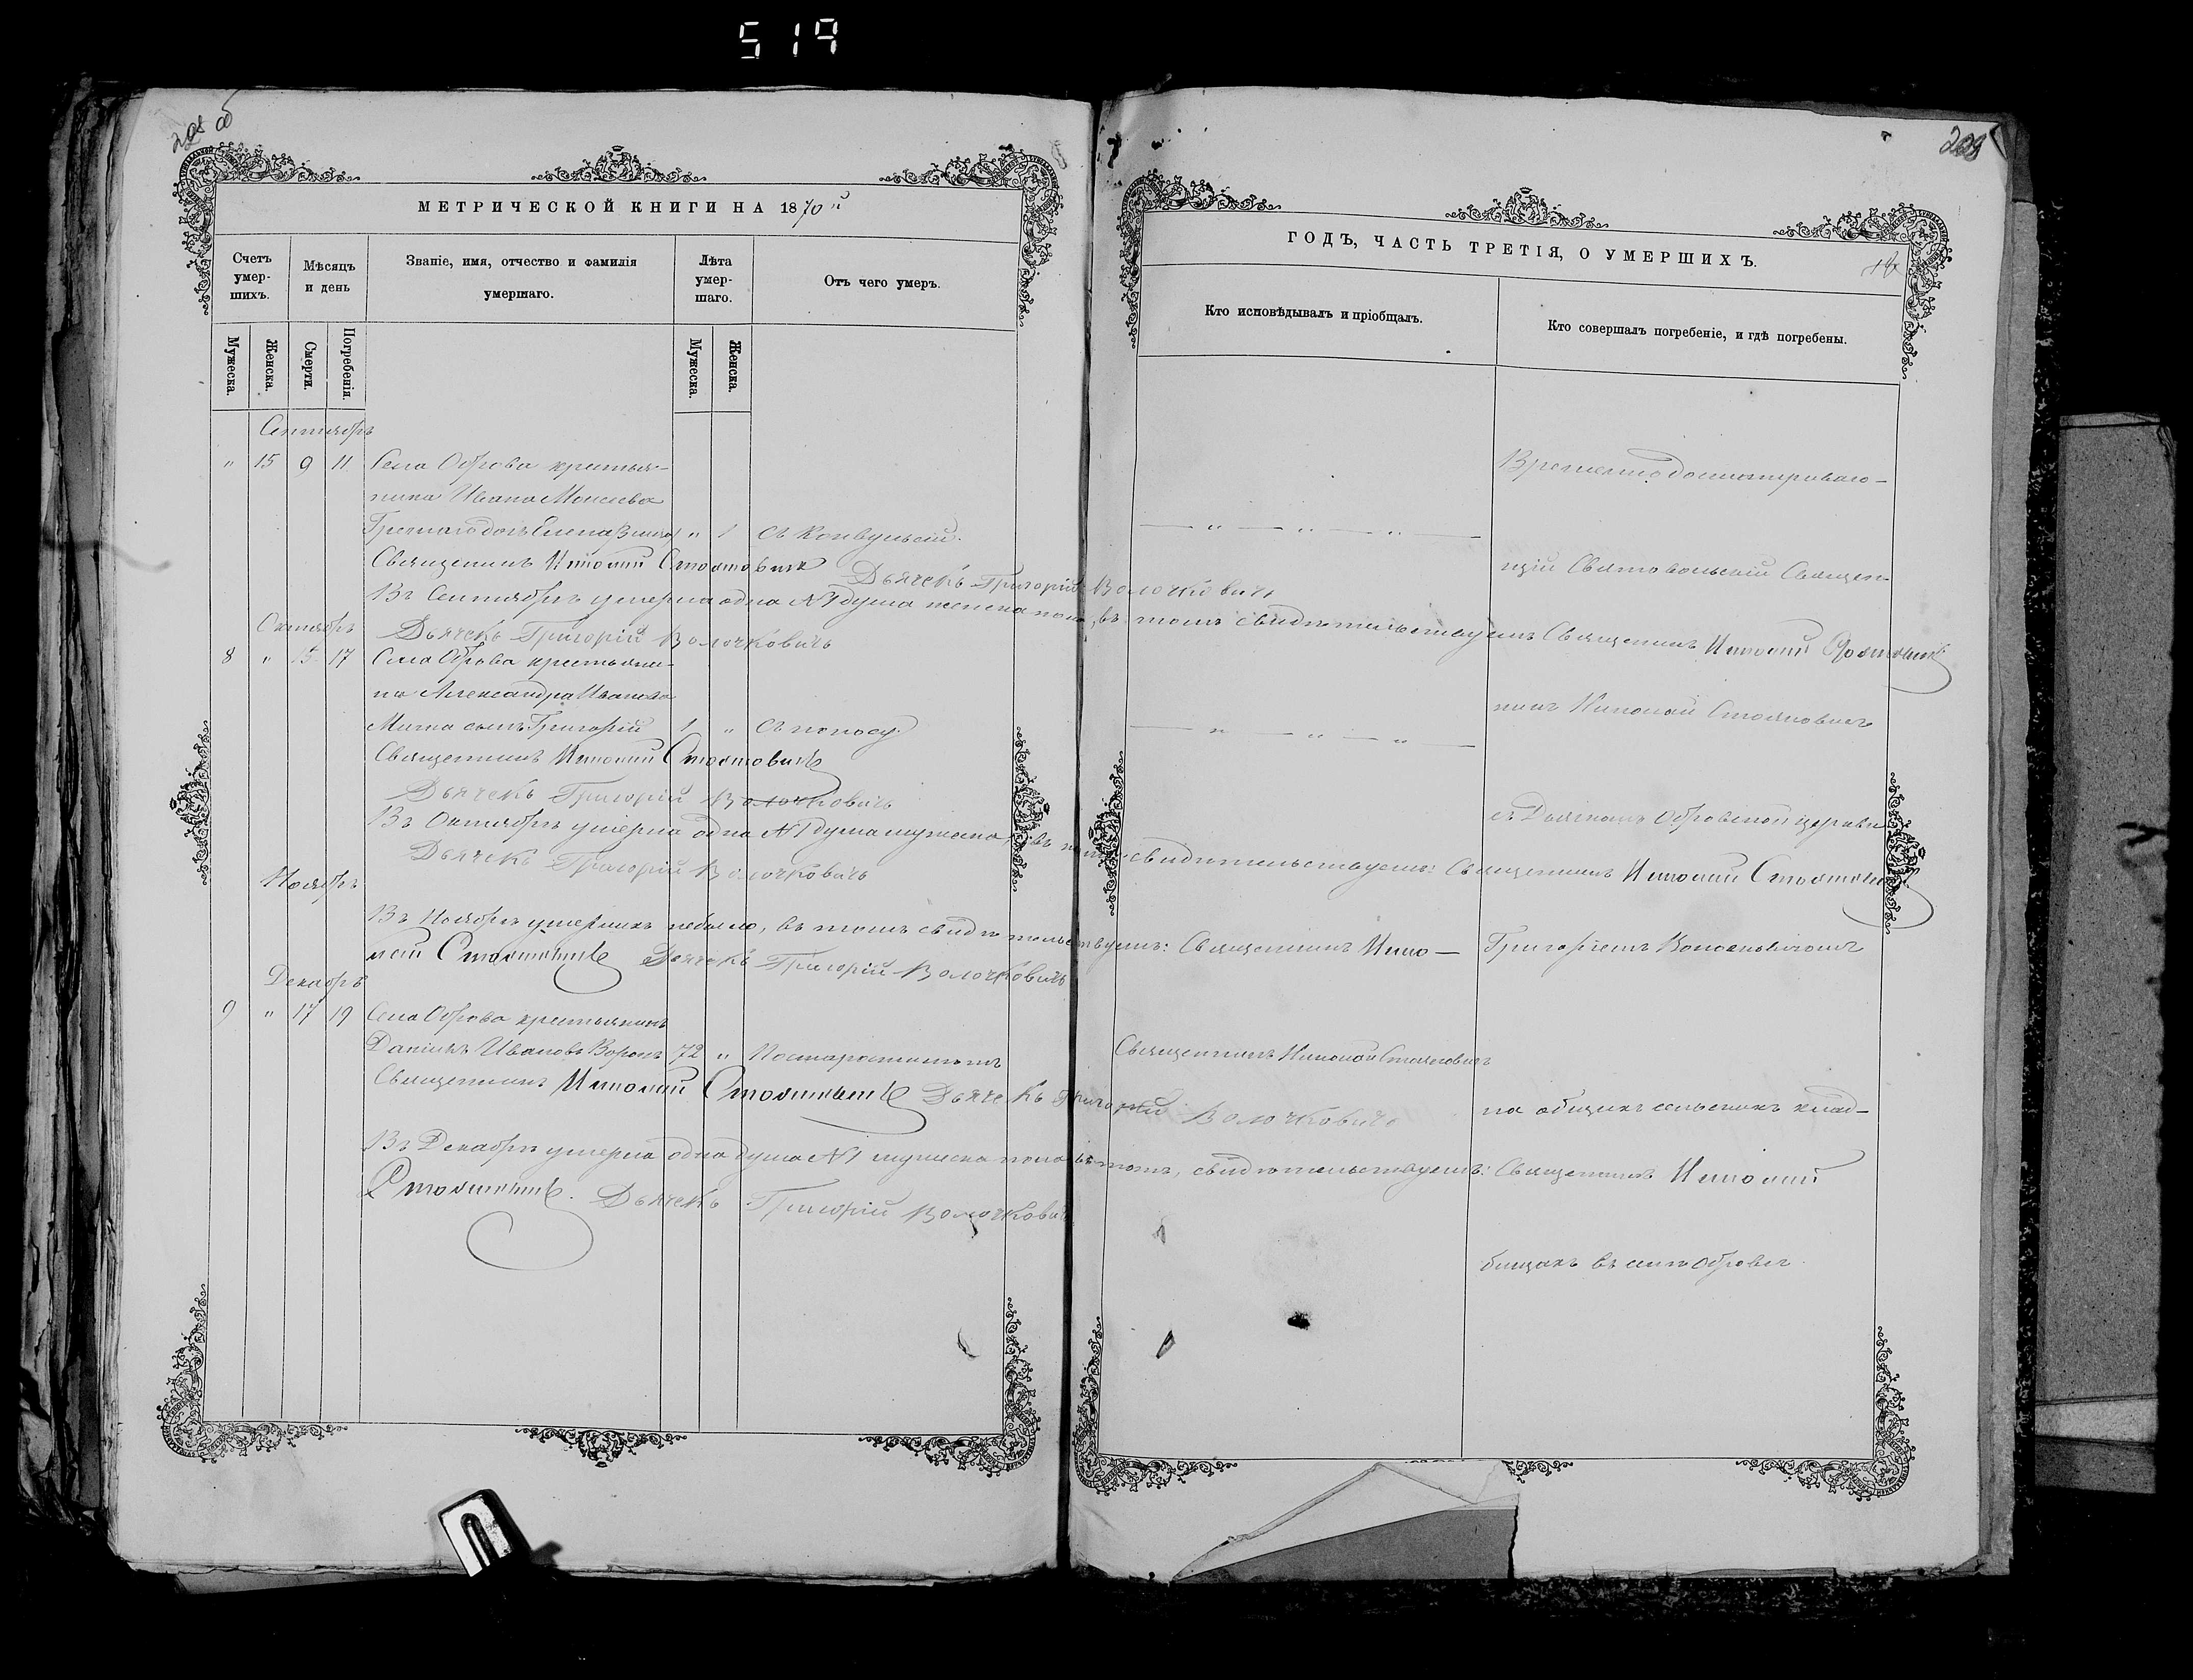 519
208 об
209
МЕТРИЧЕСКОЙ КНИГИ НА 1870й
Счетъ умер-шихъ.
Мѣсяцъ и день
Званіе, имя, отчество и фамилія умершаго.
Лѣта умер-шаго.
Отъ чего умеръ.
Мужеска.
Женска.
Смерти.
Погребенія.
Мужеска.
Женска.
Сентябрь
" 15 9 11 Села Оброва крестья-
нина Ивана Моисеева
дочь Елена " 1 Съ Конвульсій.
Священникъ Николай Стояновичъ Дьячекъ Григорій Волочковичъ
Въ Сентябрѣ умерла одна №1 душа женска пола, въ томъ свидѣтельствуемъ Священникъ Николай Стояновичъ
Дьячекъ Григорій Волочковичъ
Октябрь
8 " 15 17 Села Оброва крестьяни-
на Александра Иванова
сынъ Григорій 1 " Съ поносу.
Священникъ Николай Стояновичъ
Дьячекъ Григорій Волочковичъ
Въ Октябрѣ умерла одна №1 душа мужеска, въ томъ свидѣтельствуемъ: Священникъ Николай Стояновичъ
Дьячекъ Григорій Волочковичъ
Ноябрь
Въ Ноябрѣ умершихъ небыло, въ томъ свидѣтельствуемъ: Священникъ Нико-
лай Стояновичъ Дьячекъ Григорій Волочковичъ
Декабрь
9 " 17 19 Села Оброва крестьянинъ
Даніилъ Ивановъ Воронъ 72 " Постаростиютъ
Священникъ Николай Стояновичъ Дьячекъ Григорій Волочковичъ
Въ Декабрѣ умерла одна душа №1 мужеска пола въ томъ, свидѣтельствуемъ: Священникъ Николай
Стояновичъ. Дьячекъ Григорій Волочковичъ
ГОДЪ, ЧАСТЬ ТРЕТІЯ, О УМЕРШИХЪ.
Кто исповѣдывалъ и пріобщалъ.
Кто совершалъ погребеніе, и гдѣ погребены.
Священникъ Николай Стояновичъ
Временно
Святовольскій Священ-
никъ Николай Стояновичъ
съ Дьячкомъ Обровской церкви
Григоріемъ Волочковичомъ
на общихъ сельскихъ клад-
бищахъ въ селѣ Обровѣ